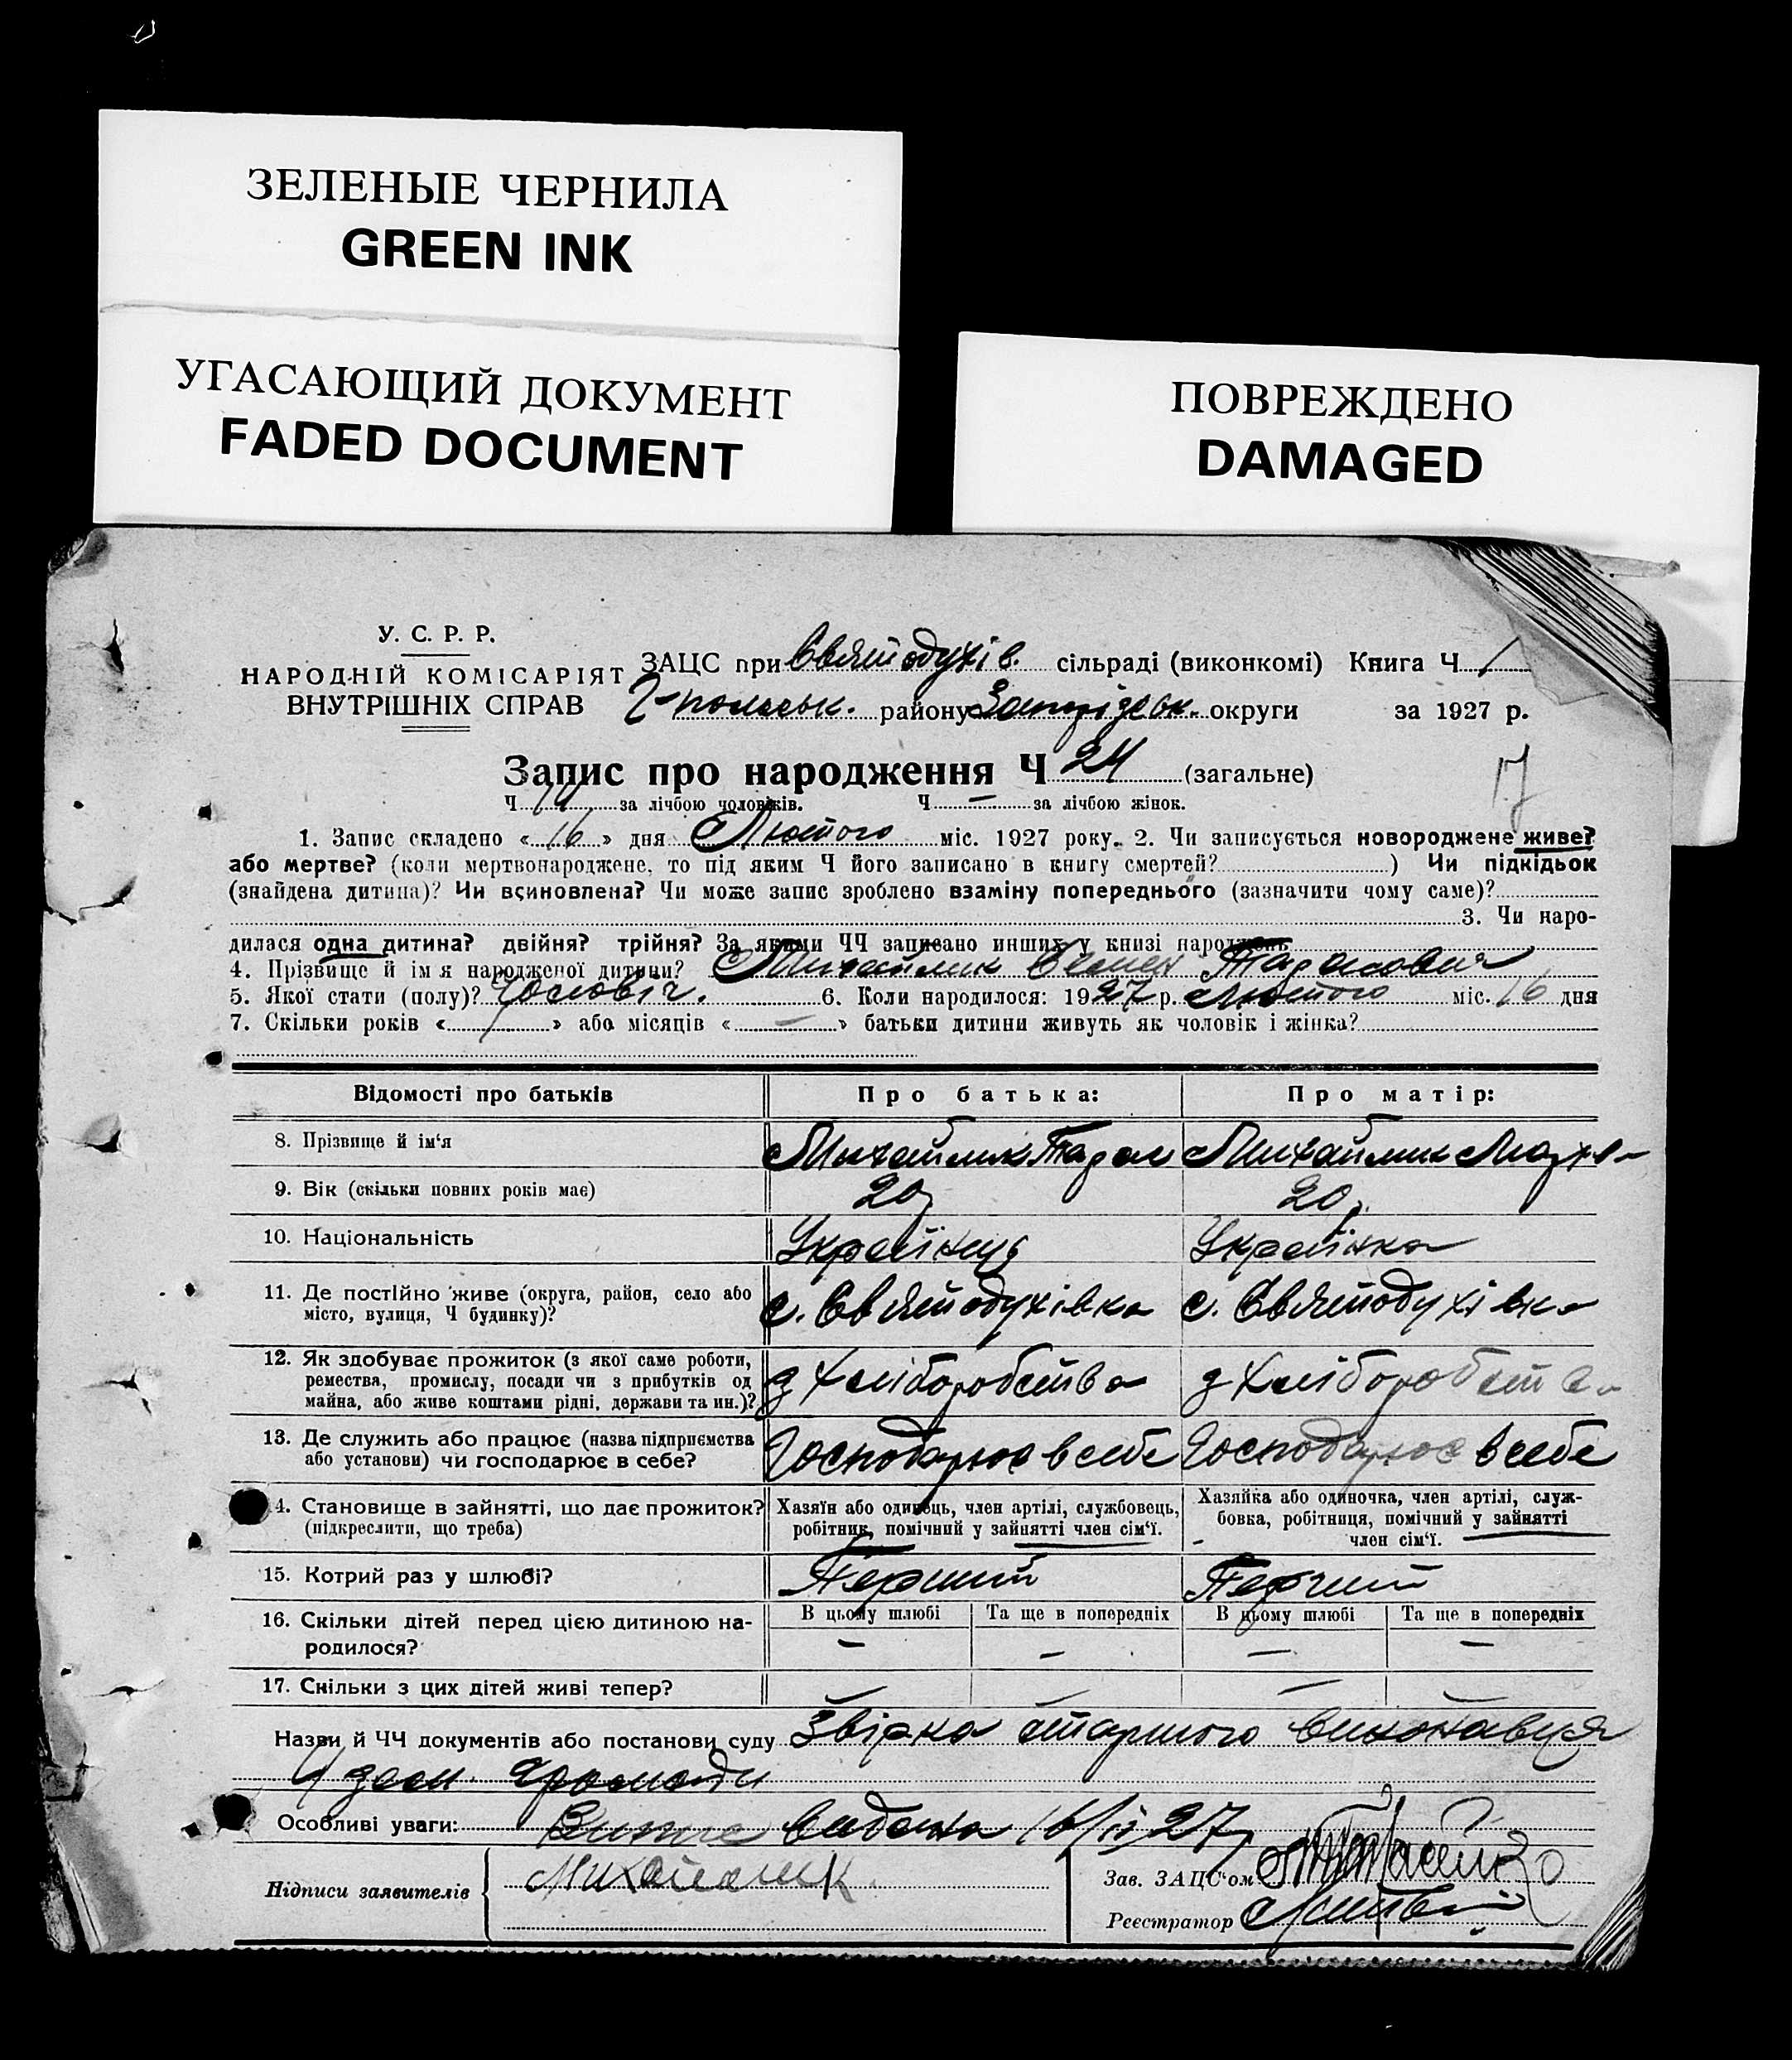 ЗЕЛЕНЫЕ ЧЕРНИЛА
GREEN INK
УГАСАЮЩИЙ ДОКУМЕНТ
FADED DOCUMENT
ПОВРЕЖДЕНО
DAMAGED
У. С. Р. Р.
НАРОДНІЙ КОМІСАРІЯТ
ВНУТРІШНІХ СПРАВ
ЗАЦС при Святодухів. сільраді (виконкомі) Книга Ч.
Г-польськ. району Запорізьк. округи за 1927 р.
Запис про народження Ч 24 (загальне)
17
Ч 14 за лічбою чоловіків. Ч — за лічбою жінок.
1. Запис складено «16» дня Лютого міс. 1927 року. 2. Чи записується новороджене живе?
або мертве? (коли мертвонароджене, то під яким Ч його записано в книгу смертей? ) Чи підкідьок
(знайдена дитина)? Чи всиновлена? Чи може запис зроблено взаміну попереднього (зазначити чому саме)?
3. Чи наро-
дилася одна дитина? двійня? трійня? За якими ЧЧ записано инших у книзі народжень
4. Прізвище й ім'я народженої дитини? Михайлик Семен Тарасович
5. Якої стати (полу)? Чоловіч. 6. Коли народилося: 1927 р. Лютого міс. 16 дня
7. Скільки років « » або місяців « — » батьки дитини живуть як чоловік і жінка?
Відомості про батьків Про батька: Про матір:
8. Прізвище й ім'я Михайлик Тарас Михайлик
9. Вік (скільки повних років має) 20 20
10. Національність Українець Українка
11. Де постійно живе (округа, район, село або
місто, вулиця, Ч будинку)? с. Святодухівка с. Святодухівка
12. Як здобуває прожиток (з якої саме роботи,
ремества, промислу, посади чи з прибутків од
майна, або живе коштами рідні, держави та ин.)? з хліборобства з хліборобства
13. Де служить або працює (назва підприємства
або установи) чи господарює в себе? Господарює в себе Господарює в себе
14. Становище в зайнятті, що дає прожиток?
(підкреслити, що треба)
Хазяїн або одинець, член артілі, службовець,
робітник, помічний у зайнятті член сім'ї.
Хазяйка або одиночка, член артілі, служ-
бовка, робітниця, помічний у зайнятті
член сім'ї.
15. Котрий раз у шлюбі? Перший Перший
16. Скільки дітей перед цією дитиною на-
родилося?
В цьому шлюбі Та ще в попередніх В цьому шлюбі Та ще в попередніх
— — — —
17. Скільки з цих дітей живі тепер? — — — —
Назви й ЧЧ документів або постанови суду Звірка старшого виконавця
громади
Особливі уваги: Випис видано 16/II 27
Підписи заявителів Михайлик
Зав. ЗАЦС'ом
Реєстратор